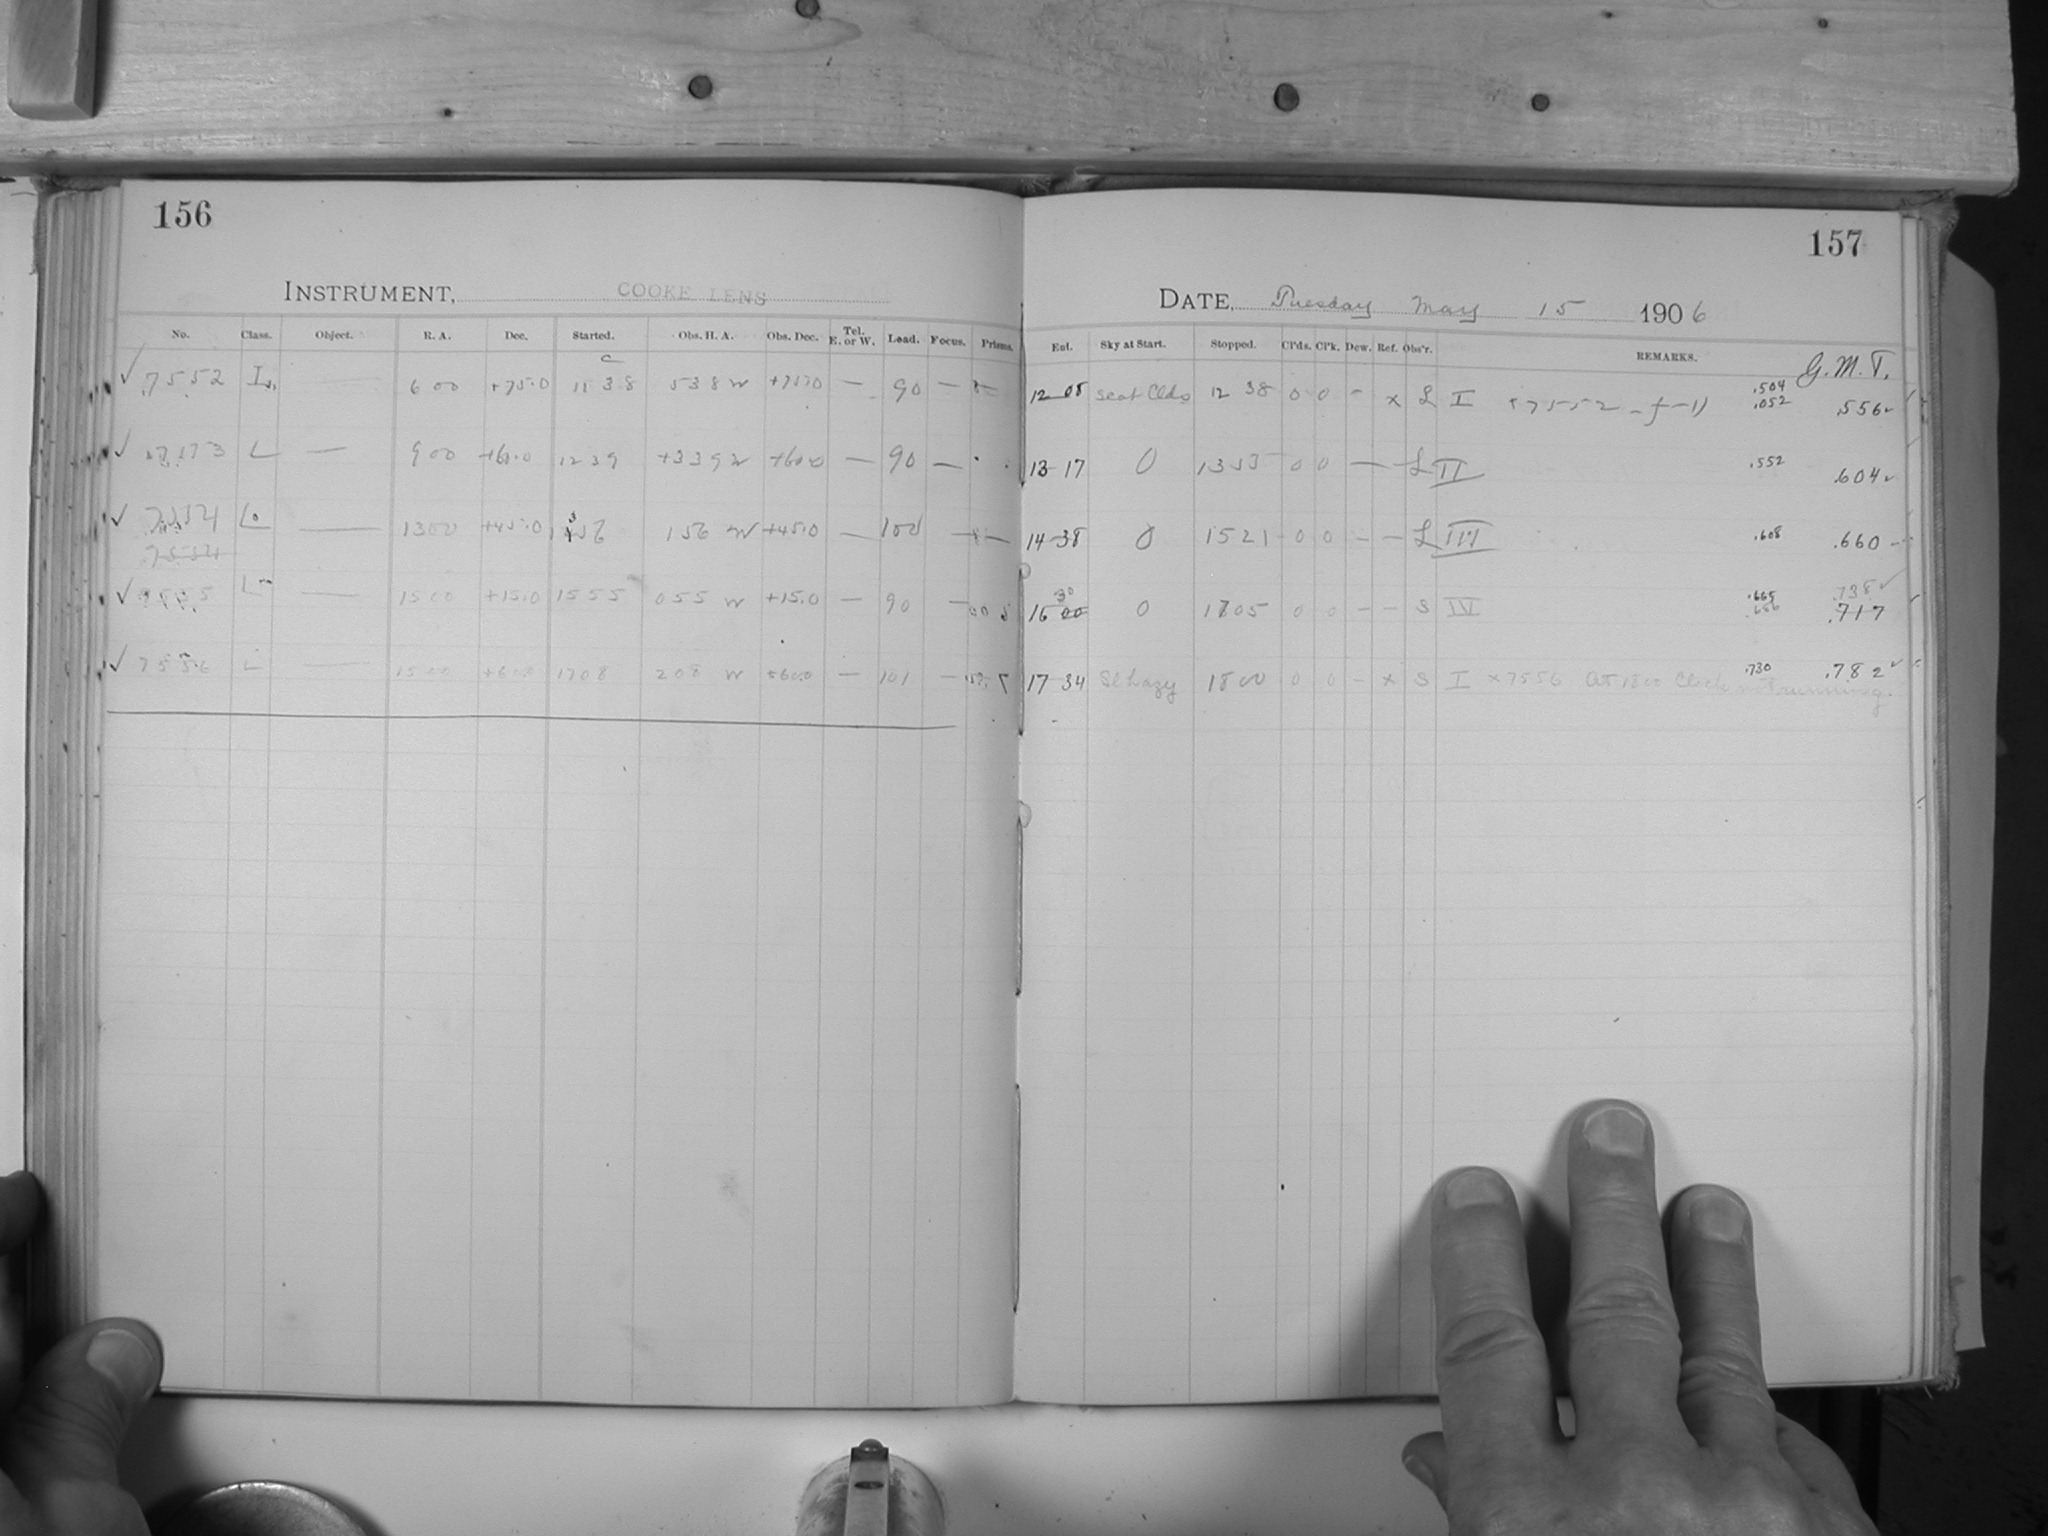 156
157
INSTRUMENT, COOKE LENS
DATE, Tuesday May 15 1906
No. Class. Object. R. A. Dec. Started. Obs. H. A. Obs. Dec. Tel. E. or W. Load. Focus. Prisms. Ent. Sky at Start. Stopped. Cl'ds. Cl'k. Dew. Ref. Obs'r. REMARKS. G. M. T.
✓ 7552 6 00 +75.0 11 38 5 38 W +75.0 — 90 — 12 08 Scat Clds 12 38 0 0 - x L I .504 .052 .556 ✓
✓ L — 9 00 +60.0 12 39 +3 39 W +60.0 — 90 — 13-17 0 0 0 — L II .552 .604 ✓
✓ — 13 00 +45.0 1 56 W +45.0 — 100 14-38 0 15 21 0 0 - - L III .608 .660
✓ L — 15 00 +15.0 15 55 0 55 W +15.0 — 90 — 16 30 0 17 05 0 0 - - S IV .665 .738 ✓ .717
✓ 7556 L — 15 00 +60.0 17 08 2 08 W +60.0 — 101 — 17-34 Sl hazy 18 00 0 0 - x S I x 7556 At 1800 Clock not running. .730 .782 ✓